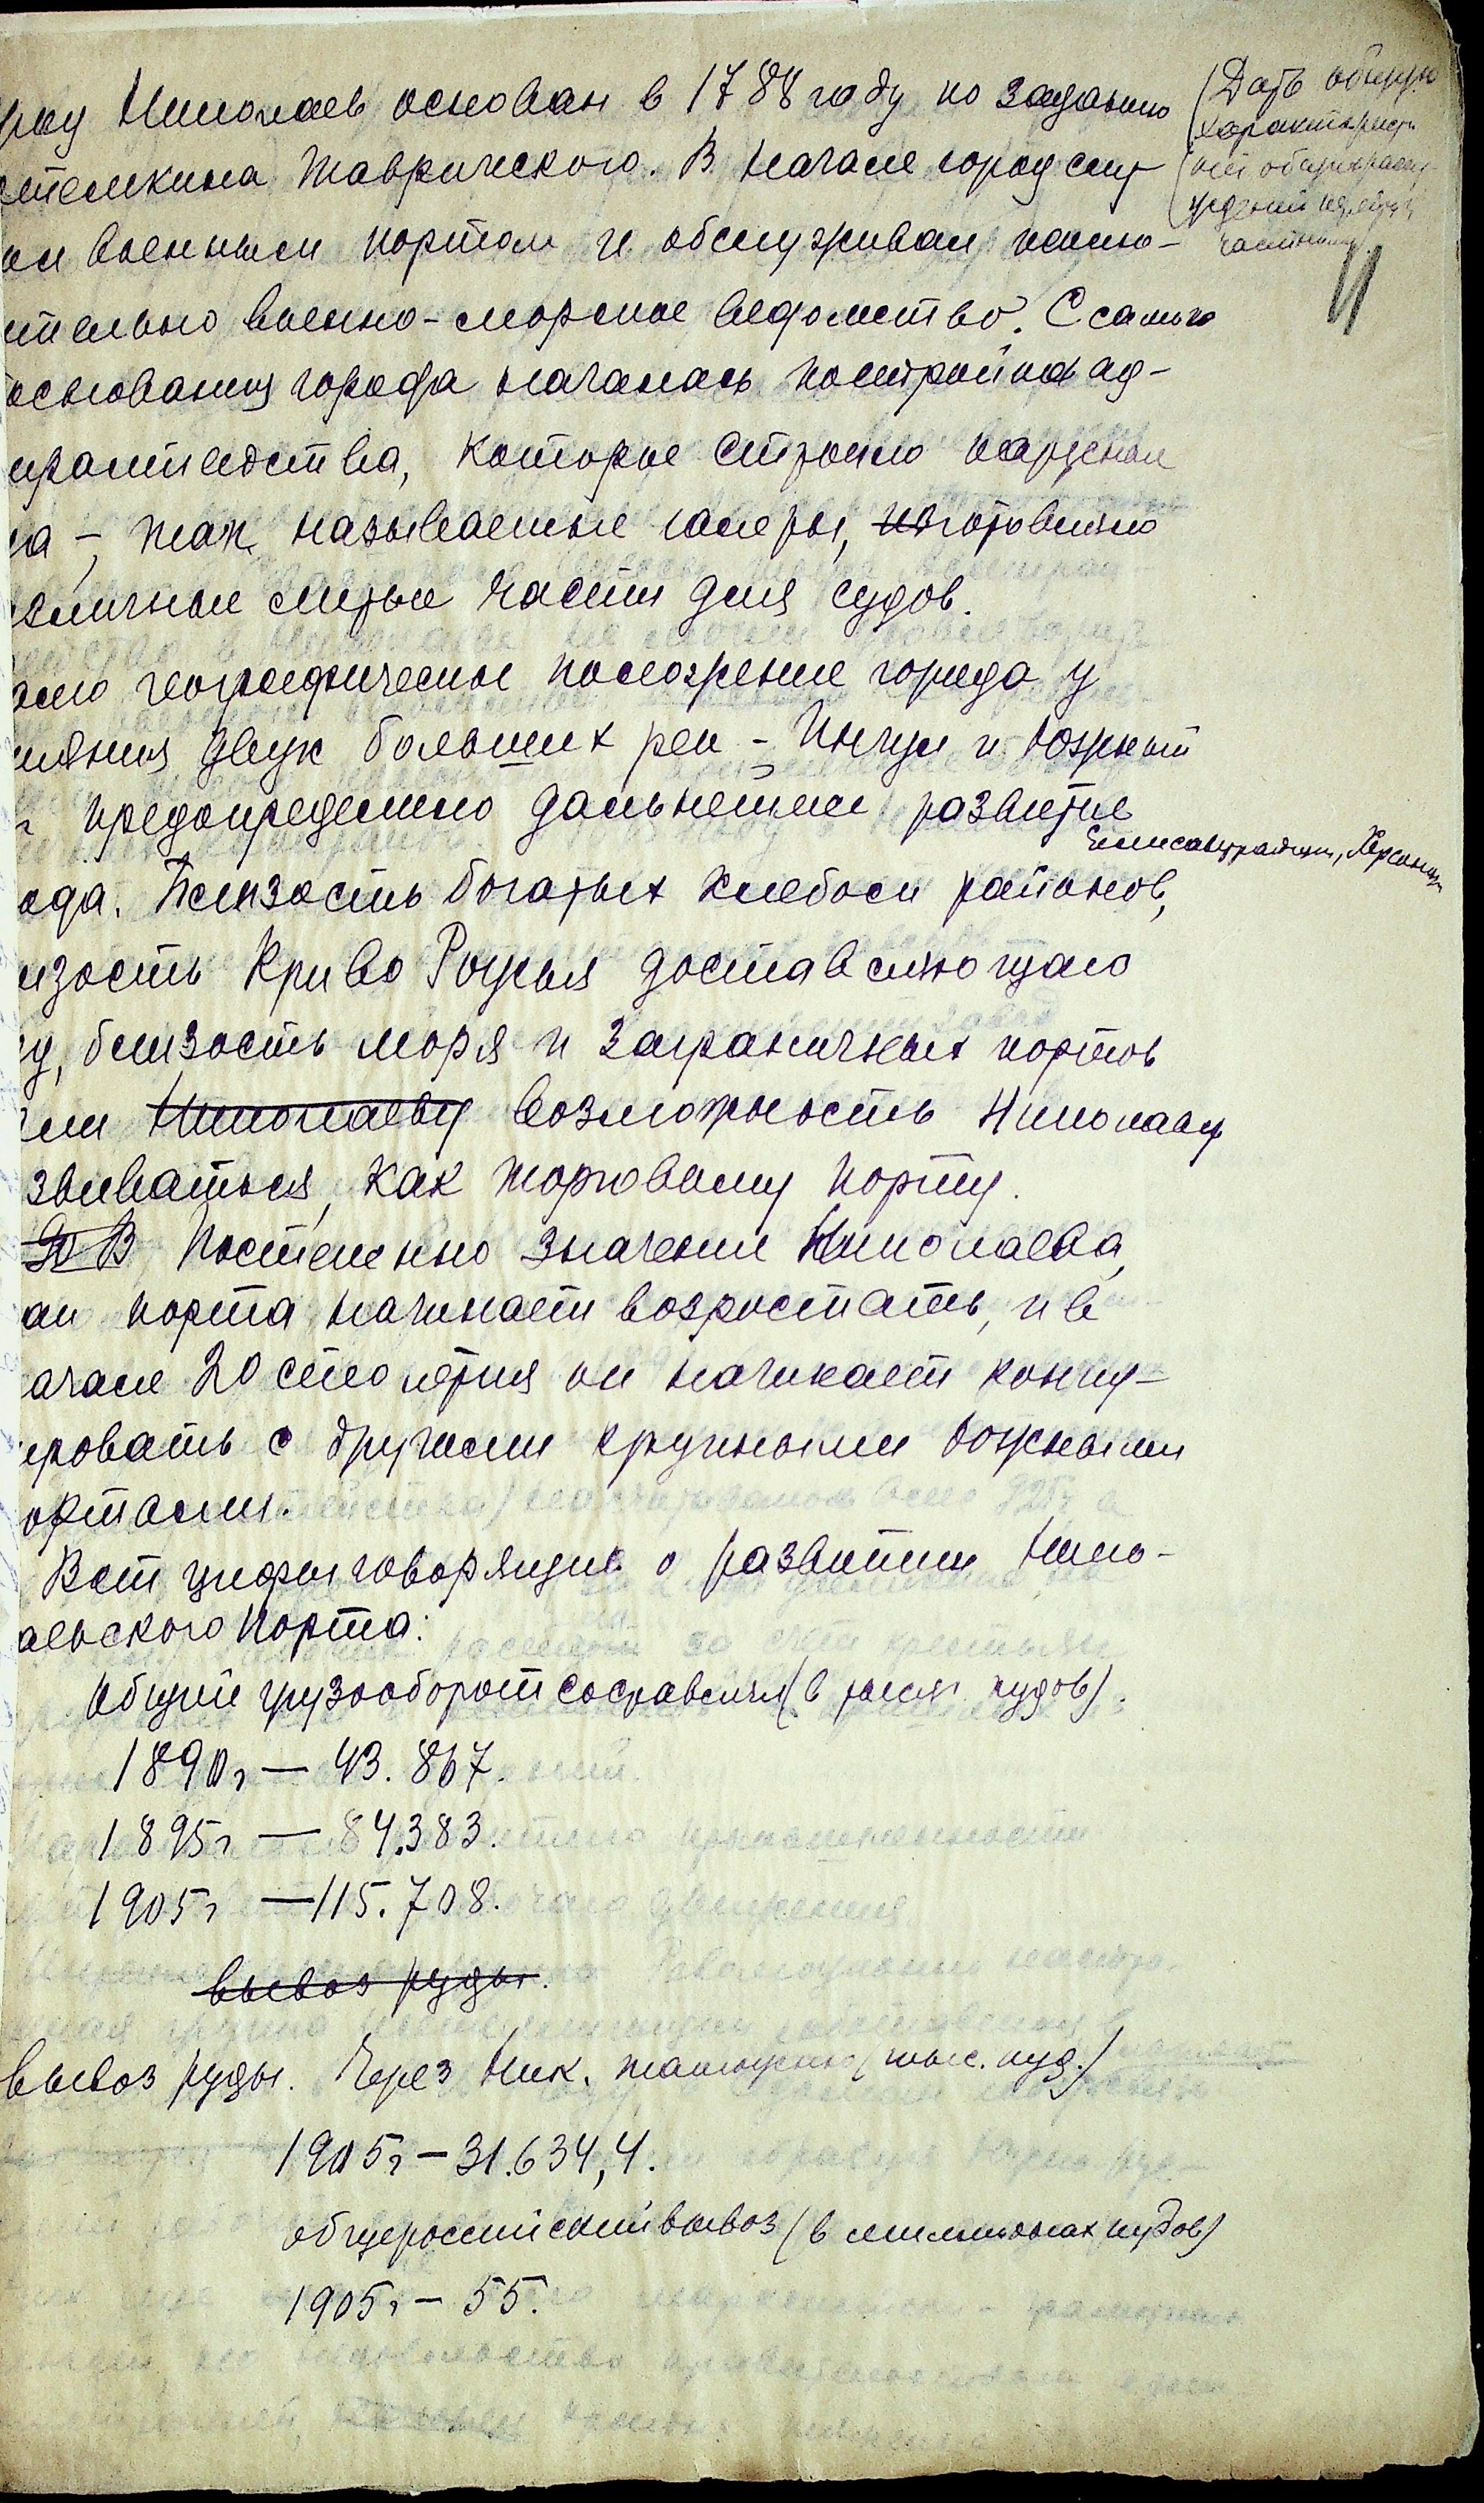 род Николаев основан в 1788 году по заданию
отемкина Таврического. В начале город слу-
ил военным портом и обслуживал исклю-
ительно военно-морское ведомство. С самого
основания города началась постройка ад-
иралтейства, которое строило парусные
а -, так называемые галеры, изготовляло
азличные литые части для судов.
амо географическое положение города у
ияния двух больших рек - Ингул и Южный
г предопределило дальнейшее развитие
Елисаветградщин, Херсонщин
ода. Близость богатых хлебом районов,
изость Криво Рожья доставляющего
ду, близость моря и заграничных портов
али Николаеву возможность Николаеву
звиваться, как торговому порту.
В Постепенно значение Николаева,
ак порта начинает возростать, и в
ачале 20 столетия он начинает конку-
ировать с другими крупными южными
ортами.
Вот цифры говорящие о развитии Нико-
аевского порта:
Общий грузооборот составлял (в тысяч. пудов).
1890г — 43.867.
1895г — 84.383.
1905г — 115.708.
вывоз руды.
вывоз руды. Через Ник. таможню (тыс. пуд.)
1905г - 31.634,4.
общероссийский вывоз (в миллионах пудов)
1905г - 55.
(Дать общую
характерист